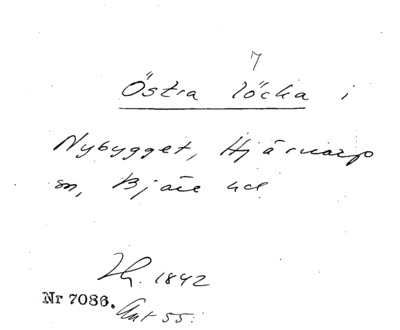 7
Östra löcka i
Nybygget, Hjärnarp
sn, Bjäre hd
Lh. 1842
Nr 7086. Ant 55.